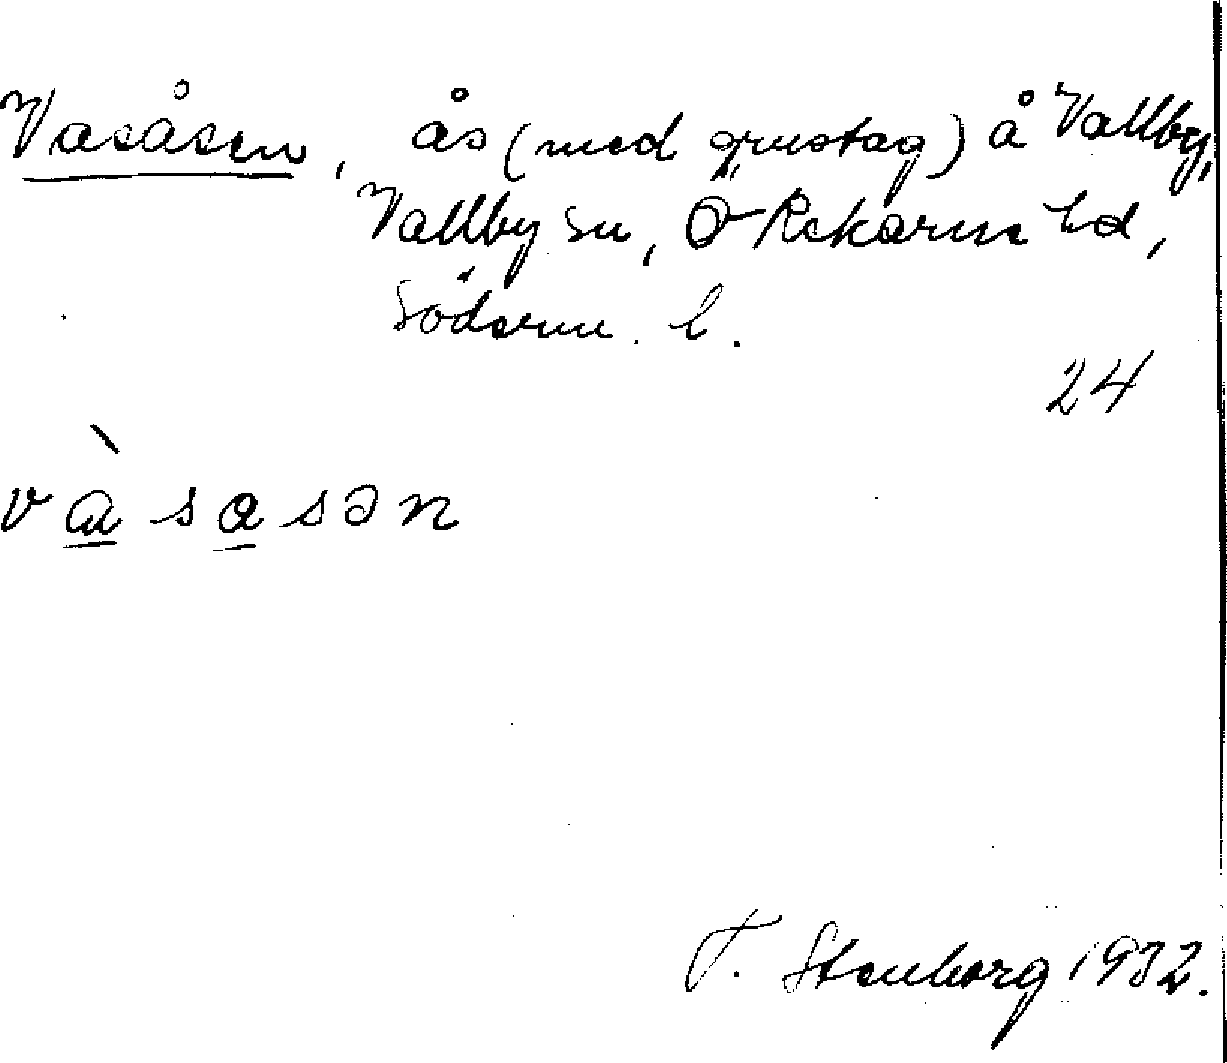 Vasåsen, ås (med grustag) å Vallby,
Vallby sn, Ö Rekarne hd,
Söderm. l.
24
v à s a s ə n
T. Stenborg 1932.